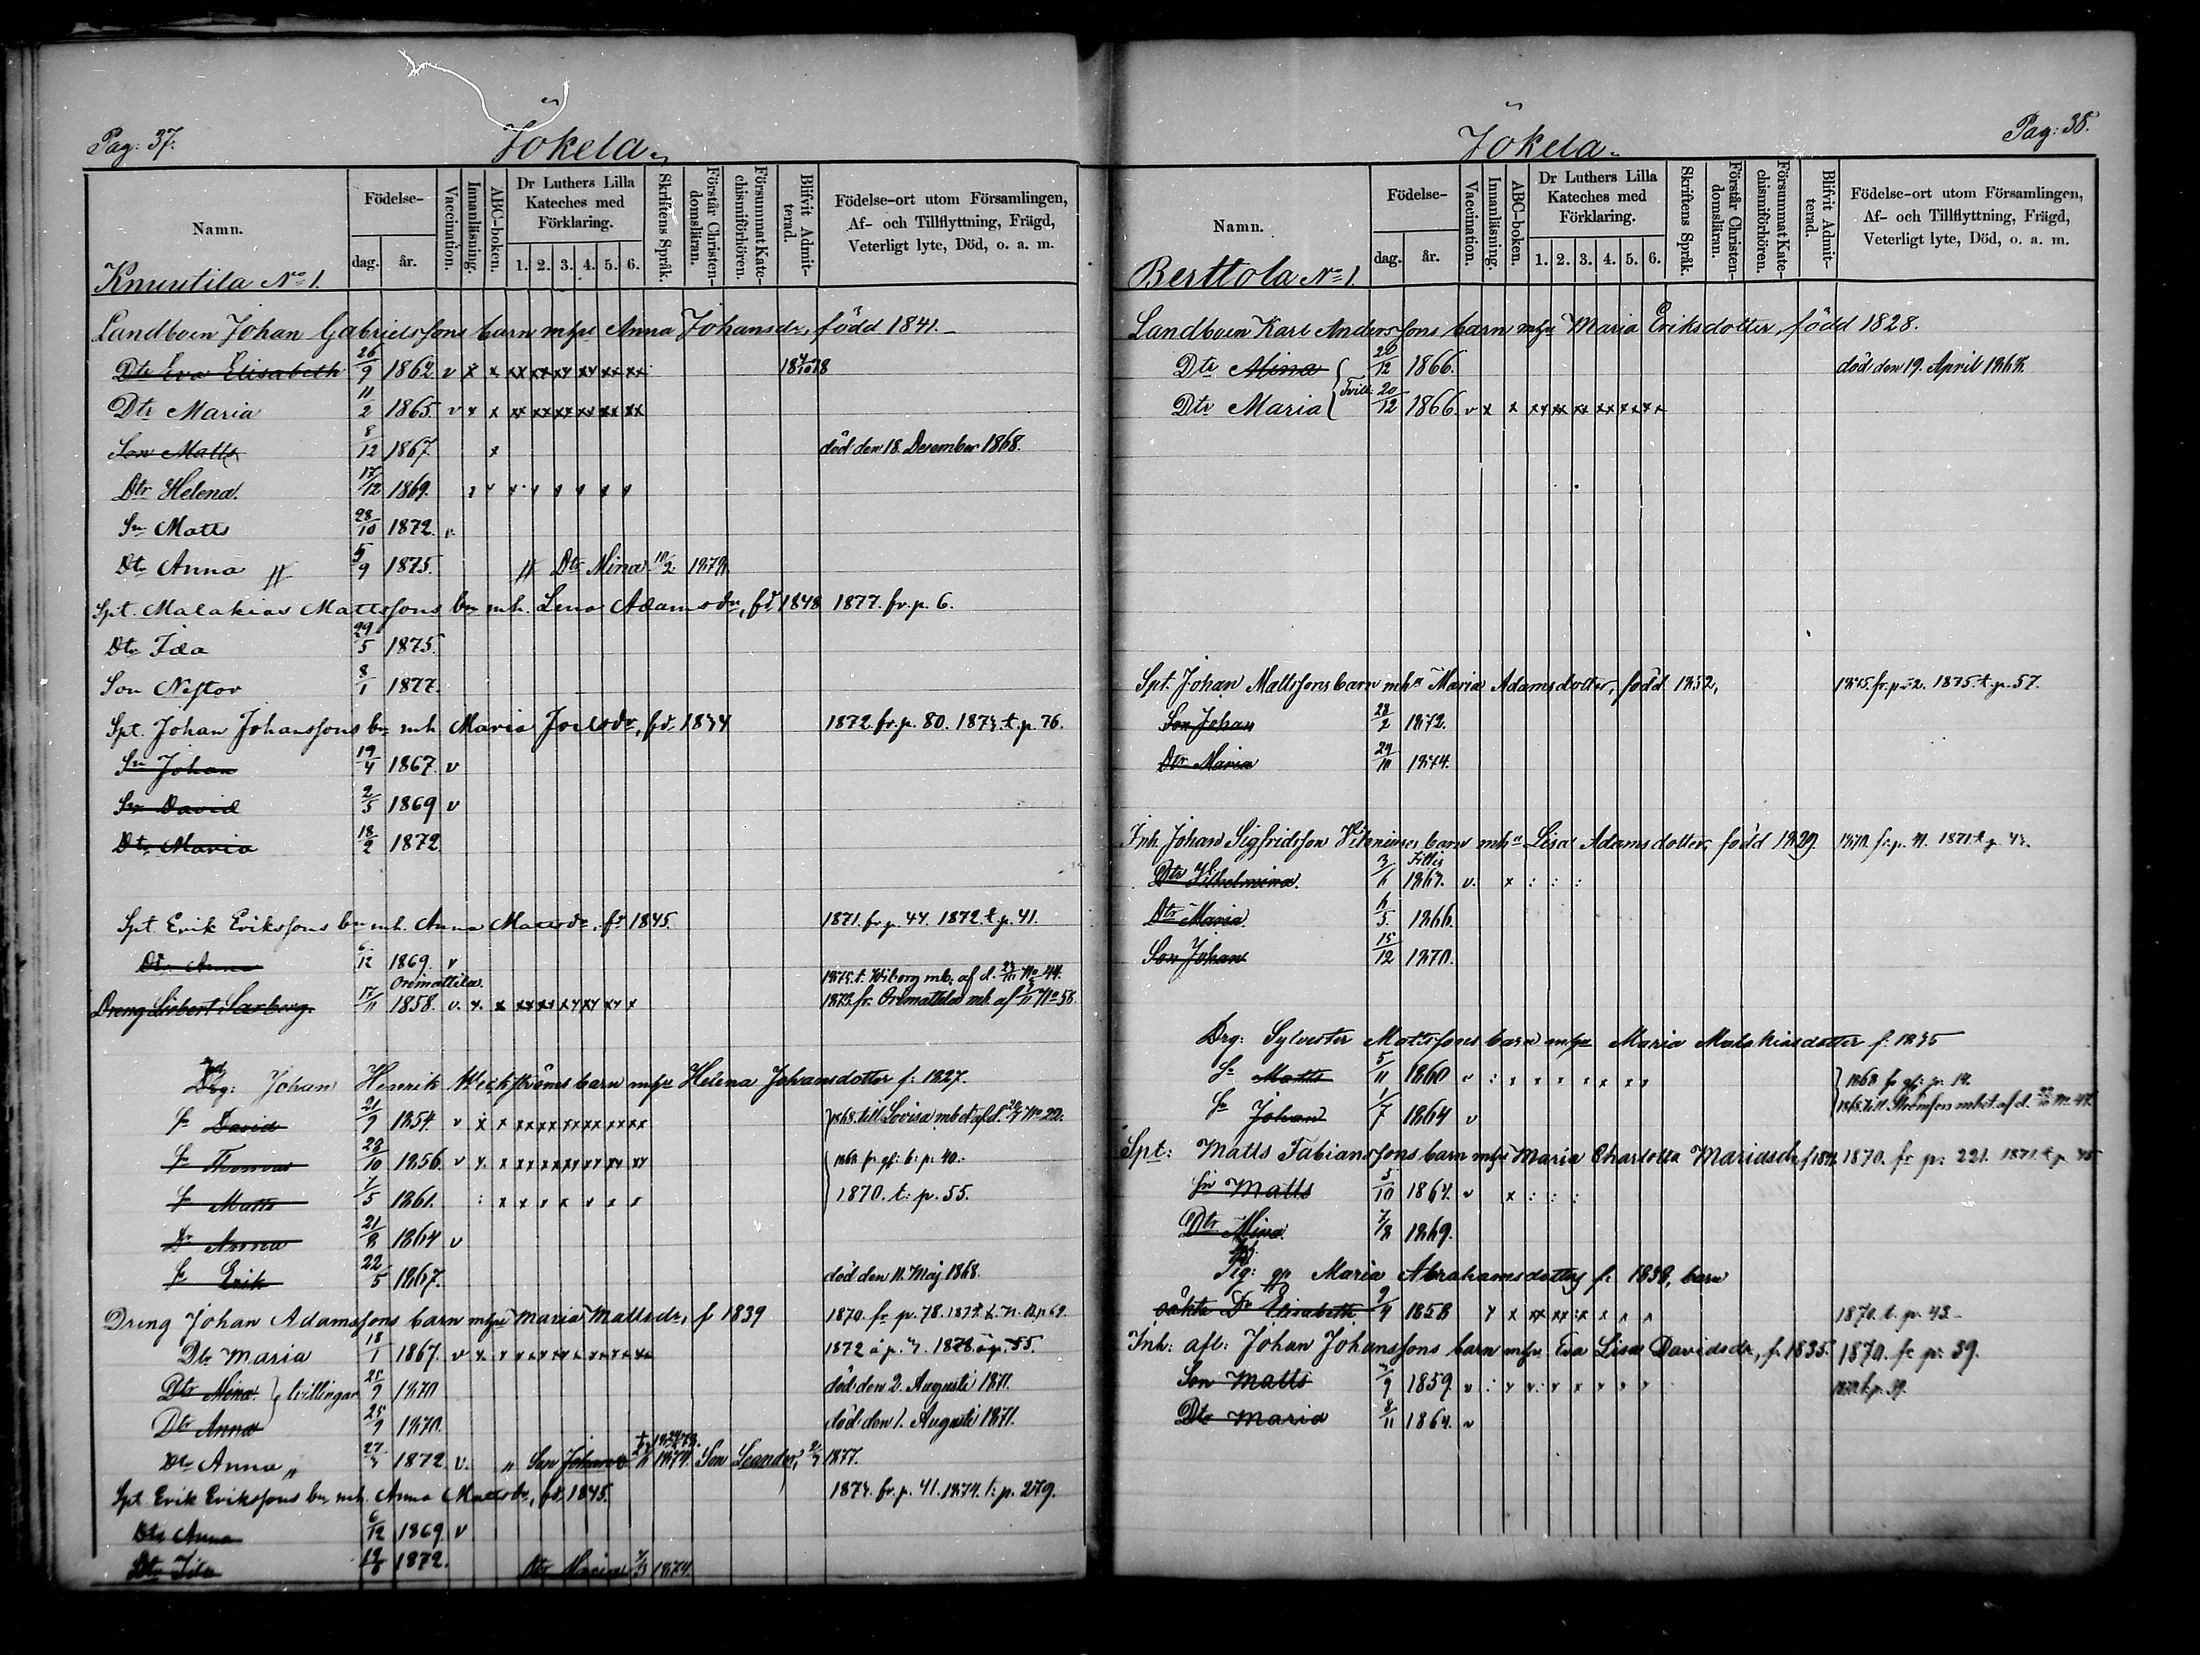 Pag: 37.
Jokela
Namn.
Födelse-
dag.
år.
Vaccination.
Innanläsning.
ABC-boken.
Dr Luthers Lilla Kateches med Förklaring.
1. 2. 3. 4. 5. 6.
Skriftens Språk.
Förstår Christen-domsläran.
Försummat Kate-chismiförhören.
Blifvit Admit-terad.
Födelse-ort utom Församlingen,
Af- och Tillflyttning, Frägd,
Veterligt lyte, Död, o. a. m.
Knuutila No 1.
Landboen Johan Gabrielssons barn m hu Anna Johansdr, född 1841.
Dtr Eva Elisabeth 26/9 1862 v x x xx xx xx xx xx xx
Dtr Maria 11/2 1865. v x x xx xx xx xx xx xx
Son Matts 8/12 1867. x död den 18. December 1868.
Dtr Helena. 17/12 1869.
Sn Matts 28/10 1872 v.
Dtr Anna 5/9 1875. Dtr Mina 10/2 1879.
Spt. Malakias Mattssons bn m h. Lena Adamsdr, fd. 1848 1877. fr. p. 6.
Dtr Ida 29/5 1875.
Son Nestor 8/1 1877.
Spt. Johan Johanssons bn m h Maria Joelsdr, fd. 1834 1872. fr. p. 80. 1873. t. p. 76.
Sn Johan 19/4 1867. v
Sn David 2/5 1869 v
Dtr Maria 18/2 1872
Spt. Erik Erikssons bn m h. Anna Mattsdr. fd 1845. 1871. fr. p. 44. 1872. t. p. 41.
Dtr Anna 6/12 1869 v
Orimattila
1875. t. Wiborg mb. af d. 23/11 No 44.
Dreng Sarberg. 17/11 1858. v. x. x xx xx xx xx xx x fr. Orimattila mb. af No 56.
Drg: Johan Henrik Weckströms barn m hu Helena Johansdotter f: 1827.
Sn David 21/9 1854. v x x xx xx xx xx xx xx 1868. till Lovisa mbet af d. No 22.
Sn Thomas 23/10 1856. v x. x xx xx xx xx xx xx 1868 fr p: 40.
Sn Matts 1/5 1861. : x x x x x x x 1870. t: p. 55.
Dr Anna 21/8 1864 v
Sn Erik 22/5 1867. död den 11. Maj 1868.
Dreng Johan Adamssons barn m hu Maria Mattsdr, f 1839 1870. fr p. 78.
Dtr Maria 18/1 1867. v 1872 å p. 1878 å p. 55.
Dtr Mina tvillingar 25/9 1870 död den 2. Augusti 1871.
Dtr Anna 25/9 1870. död den 1. Augusti 1871.
Dtr Anna 27/3 1872 v. Son Johan 1874. Son Leander, 1877.
Spt. Erik Erikssons bn m h. Anna Mattsdr, fd. 1845. 1873. fr. p. 41. 1874. t. p. 279.
Dtr Anna 6/12 1869 v
Dtr Ida 1872. Dtr Maria 1874.
Pag: 38.
Jokela
Namn.
Födelse-
dag.
år.
Vaccination.
Innanläsning.
ABC-boken.
Dr Luthers Lilla Kateches med Förklaring.
1. 2. 3. 4. 5. 6.
Skriftens Språk.
Förstår Christen-domsläran.
Försummat Kate-chismiförhören.
Blifvit Admit-terad.
Födelse-ort utom Församlingen,
Af- och Tillflyttning, Frägd,
Veterligt lyte, Död, o. a. m.
Berttola No 1
Landboen Karl Anderssons barn m hu Maria Eriksdotter, född 1828.
Dtr Mina 20/12 1866. död den 19. April 1868.
Tvill:
Dtr Maria 20/12 1866. v x x xx xx xx xx
Spt. Johan Mattssons barn m ha Maria Adamsdotter, född 1852, 1875. t. p. 57.
Son Johan 28/2 1872.
Dtr Maria 29/10 1874.
Inh. Johan Sigfridsson barn m ha Lisa Adamsdotter, född 1829. 1870. fr. p. 41. 1871. t. p. 43.
Dtr Wilhelmina. 3/6 1863. v. x : : :
Dtr Maria. 6/5 1866.
Son Johan 15/12 1870.
Drg: Sylvester Matssons barn m hu Maria Malakiasdotter f. 1835
Sn Matts 5/11 1860 v
Sn Johan 1/7 1864 v
1868. till Strömfors mbet af d. No 47.
Spt: Matts Fabianssons barn m hu Maria Charlotta Mariasdr 1870. fr p: 221. 1871. t. p. 45
Sn Matts 5/10 1864. v x : : :
Dtr Mina. 7/8 1869.
Pig: Maria Abrahamsdotters f: 1838, barn
oäkta Dr Elisabeth 9/4 1858 1870. t. p. 43.
Inh: afl: Johan Johanssons barn m hu Eva Lisa Davidsdr, f. 1835. 1870. fr p: 39.
Son Matts 7/9 1859. v t. p. 39.
Dtr Maria 8/11 1864. v